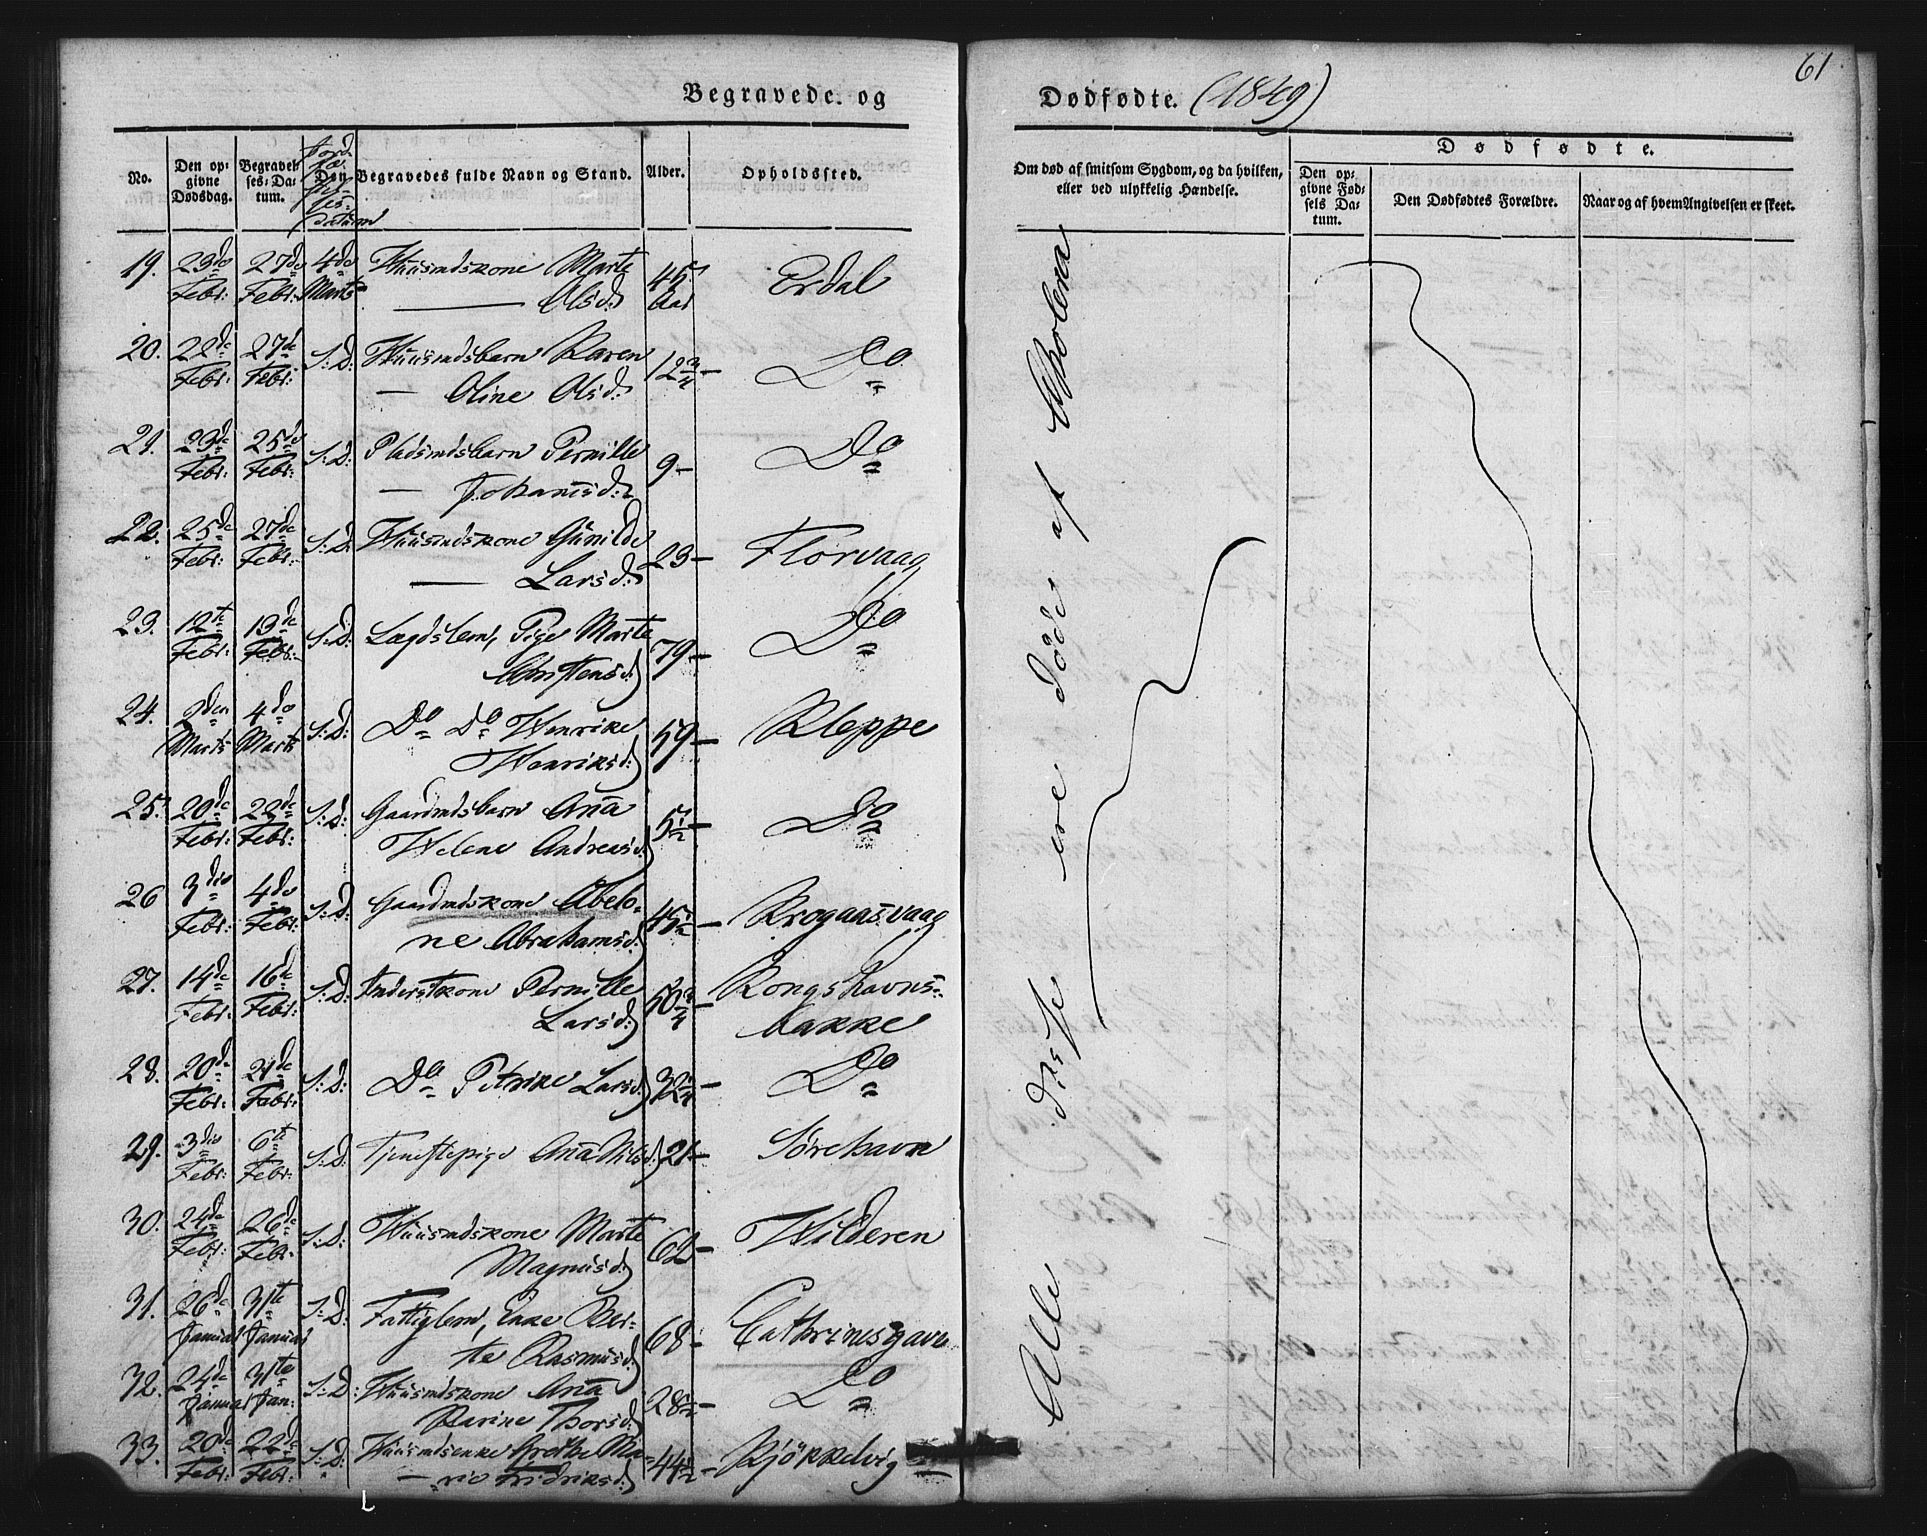 61
Begravede og Dødfødte. (1849)
No.
Den op- givne Dødsdag.
Begravel- ses-Da- tum.
Begravedes fulde Navn og Stand.
Alder.
Opholdssted.
Om død af smitsom Sygdom, og da hvilken,
eller ved ulykkelig Hændelse.
Dødfødte.
Den op- givne Fød- sels Da- tum.
Den Dødfødtes Forældre.
Naar og af hvem Angivelsen er skeet.
19. 23de Febr: 27de Febr: 4de Marts Huusmdskone Marte Olsd: 45 Aar Erdal
20. 22de Febr: 27de Febr: S: D: Huusmdsbarn Karen Oline Olsd: 12 3/4 - Do
21. 23de Febr: 25de Febr: S: D: Pladsmdsbarn Pernille Johannsd: 9 - Do
22. 25de Febr: 27de Febr: S: D: Huusmdskone Gunilde Larsd: 23 - Florvaag
23. 12te Febr: 13de Febr: S: D: Lægdslem, Pige Marte Christensd: 79 - Do
24. 2den Marts 4de Marts S: D: Do Do Henrike Henriksd: 59 - Kleppe
25. 20de Febr: 22de Febr: S: D: Gaardmdsbarn Ana Helene Andreasd: 5 1/2 - Do
26 3die Febr: 4de Febr: S: D: Gaardmdskone Abelo- ne Abrahamsd: 45 1/2 - Krogaasvaag
27. 14de Febr: 16de Febr: S: D: Inderstkone Pernille Larsd: 50 3/4 - Kongshavns- bakke
28. 20de Febr: 21de Febr: S: D: Do Petrike Larsd: 32 1/4 - Do
29. 3die Febr: 6te Febr: S: D: Tjenestepige Ana Nilsd: 21 - Sørehavn
30. 24de Febr: 26de Febr: S: D: Huusmdskone Marte Magnusd: 62 - Hilderen
31. 26de Januar 31te Januar S: D: Fattiglem, Enke Ber- te Rasmusd: 68 - Cathrinesgavn
32. 24de Januar 31te Jan: S: D: Huusmdskone Ana Karine Thorsd: 28 1/2 - Do
33. 20de Febr: 22de Febr: S: D: Huusmdsenke Grethe Ma- rie Fridriksd: 44 1/2 - Kjøkkelvig
Alle disse ere døde af Cholera